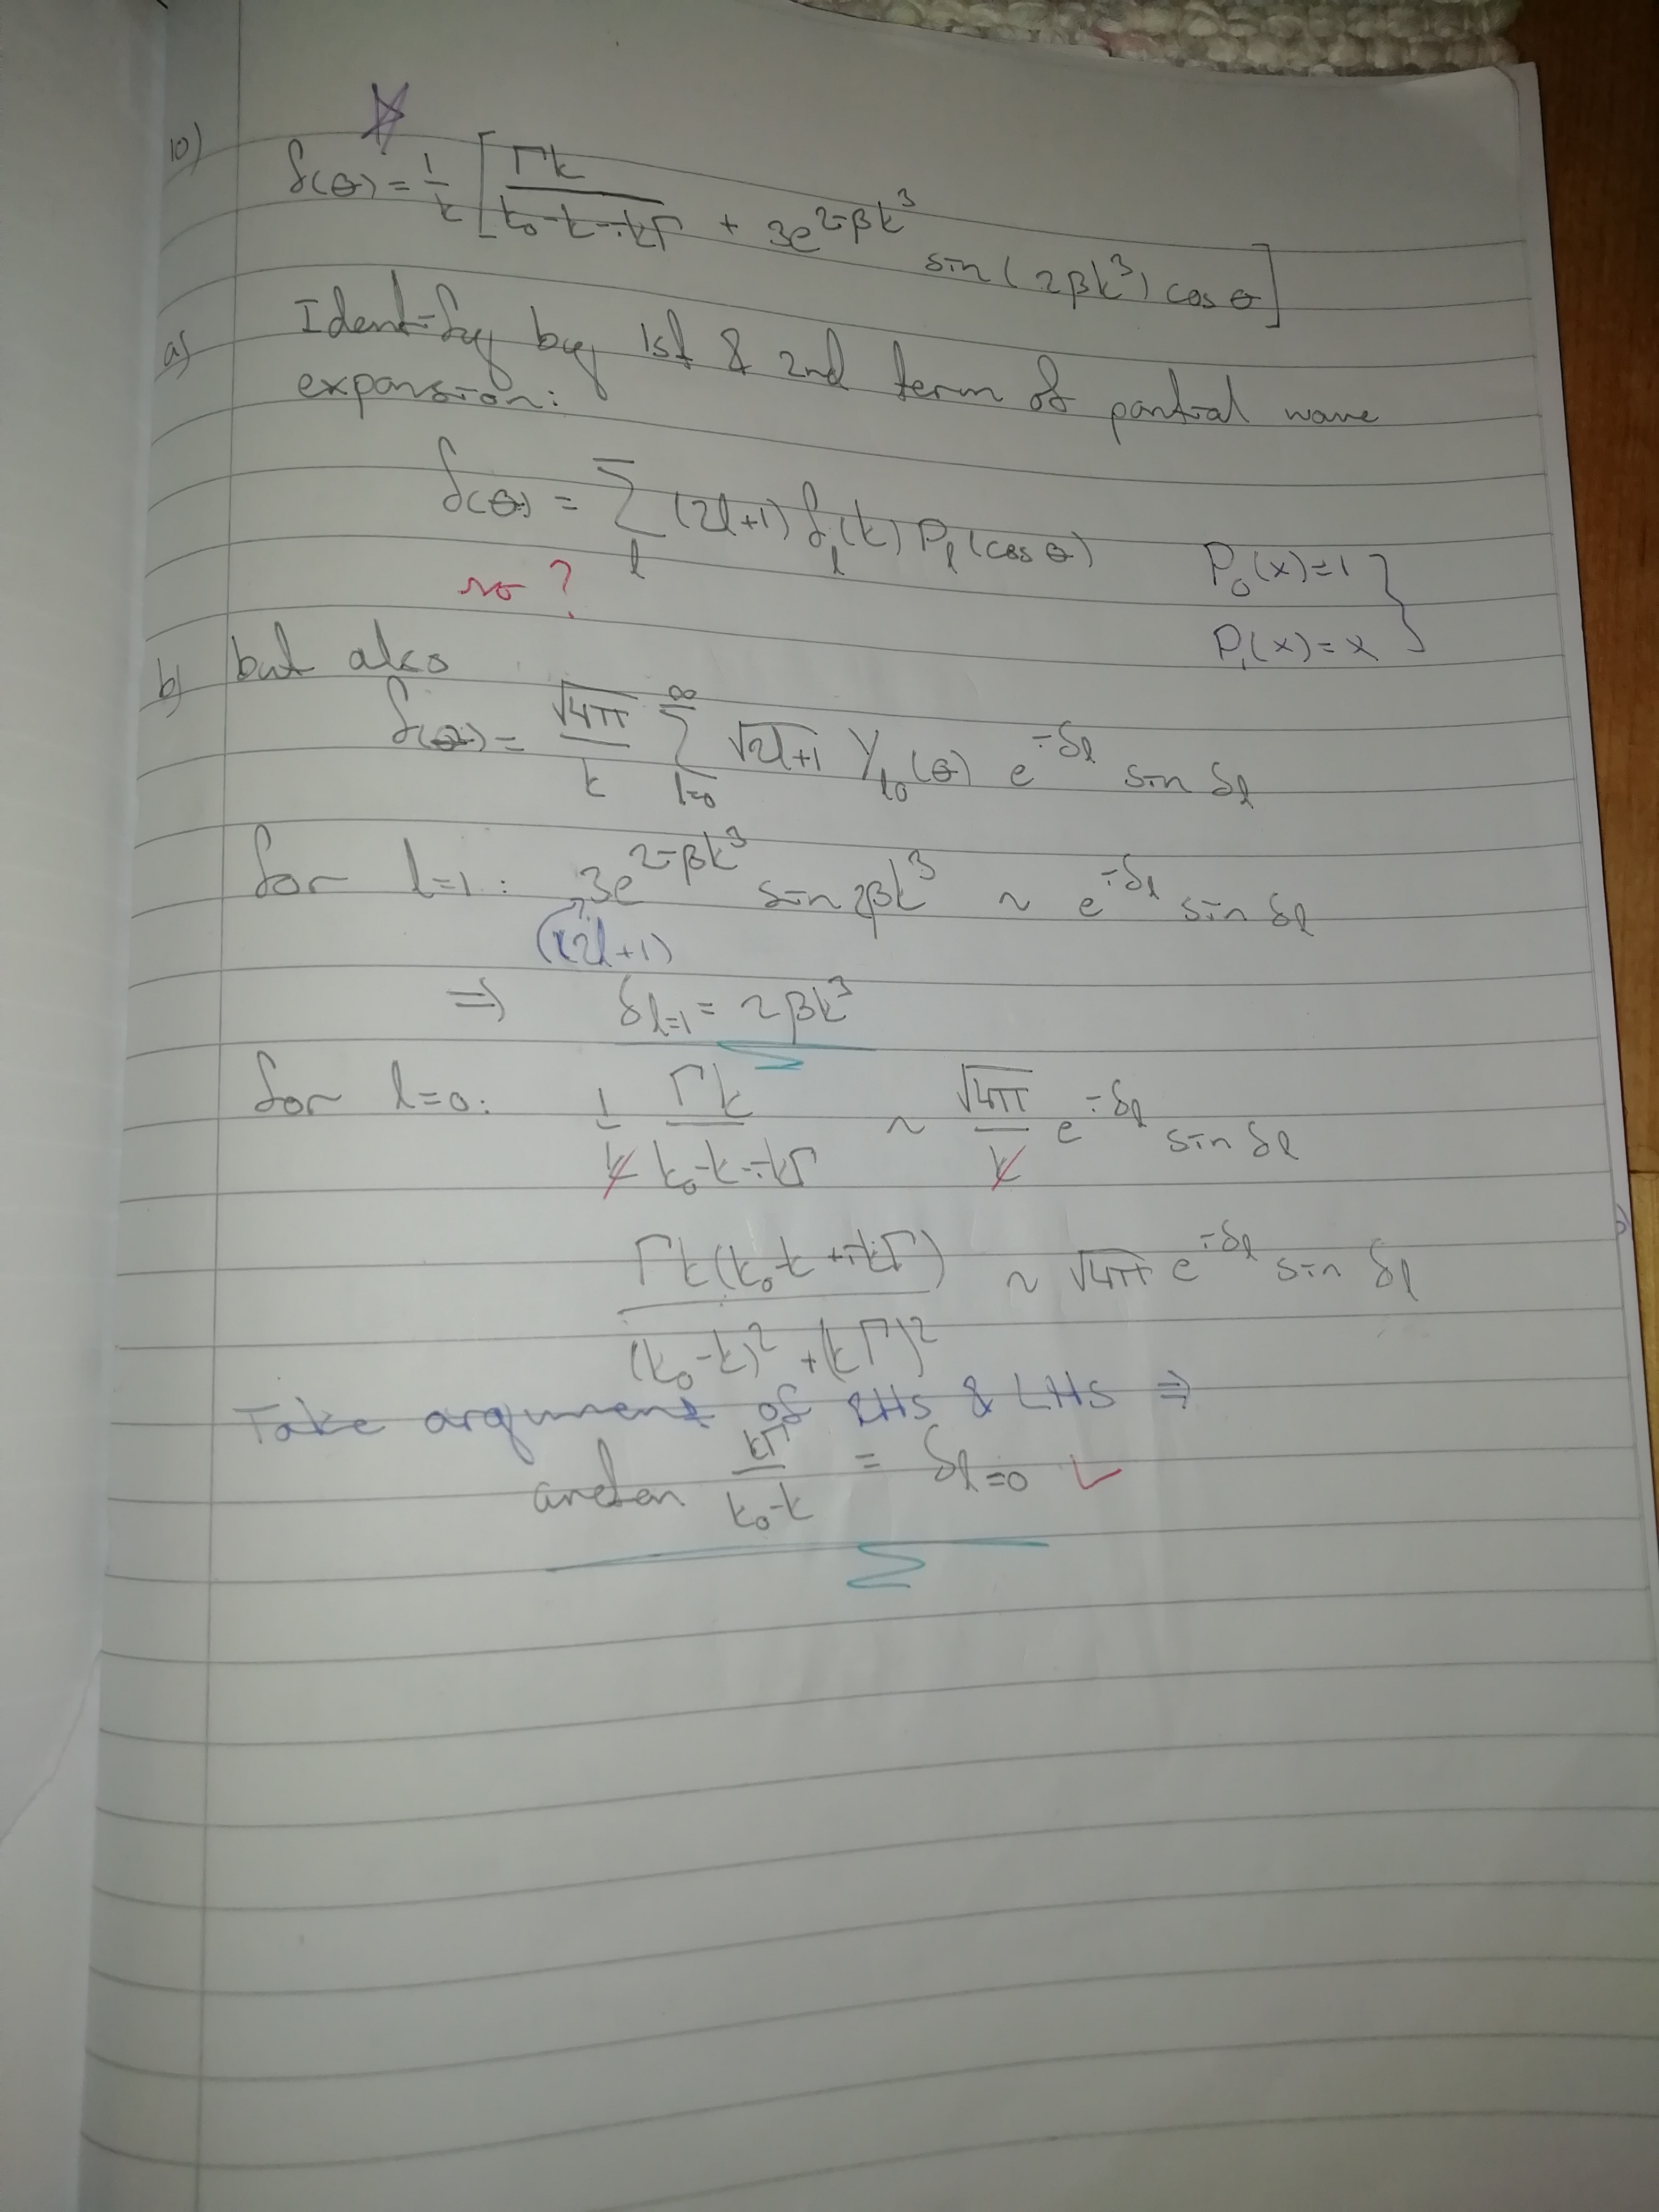 10)
f(θ) = 1/k [ Γk / (k₀-k-ikΓ) + 3e^{2iβk³} sin(2βk³) cos θ ]
a) Identify by 1st & 2nd term of partial wave
expansion:
f(θ) = Σ_l (2l+1) f_l(k) P_l(cos θ) P₀(x)=1 }
no ? P₁(x)=x
b) but also
f(θ) = √4π / k Σ_{l=0}^∞ √2l+1 Y_{l0}(θ) e^{iδ_l} sin δ_l
for l=1: 3e^{2iβk³} sin 2βk³ ~ e^{iδ_l} sin δ_l
(2l+1)
⇒ δ_{l=1} = 2βk³
for l=0: 1/k Γk / (k₀-k-ikΓ) ~ √4π / k e^{iδ_l} sin δ_l
Γk(k₀-k+ikΓ) / ((k₀-k)² + (kΓ)²) ~ √4π e^{iδ_l} sin δ_l
Take argument of RHS & LHS ⇒
arctan kΓ / (k₀-k) = δ_{l=0} ✓